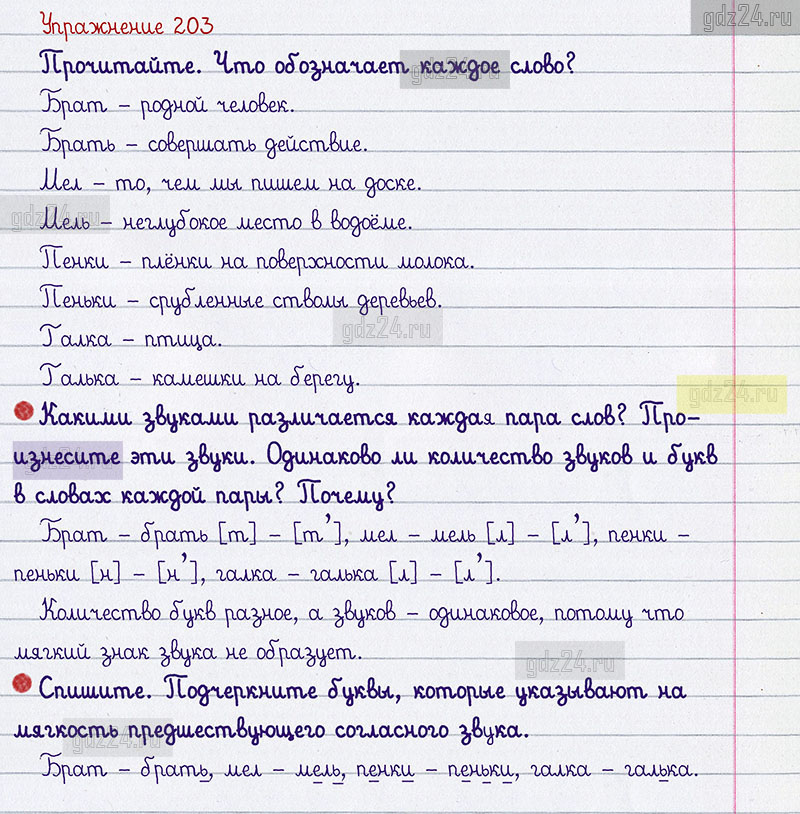 Упражнение 203
gdz24.ru
Прочитайте. Что обозначает каждое слово?
gdz24.ru
Брат – родной человек.
Брать – совершать действие.
Мел – то, чем мы пишем на доске.
Мель – неглубокое место в водоёме.
gdz24.ru
Пенки – плёнки на поверхности молока.
Пеньки – срубленные стволы деревьев.
Галка – птица.
gdz24.ru
Галька – камешки на берегу.
gdz24.ru
Какими звуками различается каждая пара слов? Про-
изнесите эти звуки. Одинаково ли количество звуков и букв
gdz24.ru
в словах каждой пары? Почему?
Брат – брать [т] – [т’], мел – мель [л] – [л’], пенки –
пеньки [н] – [н’], галка – галька [л] – [л’].
Количество букв разное, а звуков – одинаковое, потому что
мягкий знак звука не образует.
gdz24.ru
Спишите. Подчеркните буквы, которые указывают на
мягкость предшествующего согласного звука.
gdz24.ru
Брат – брать, мел – мель, пенки – пеньки, галка – галька.